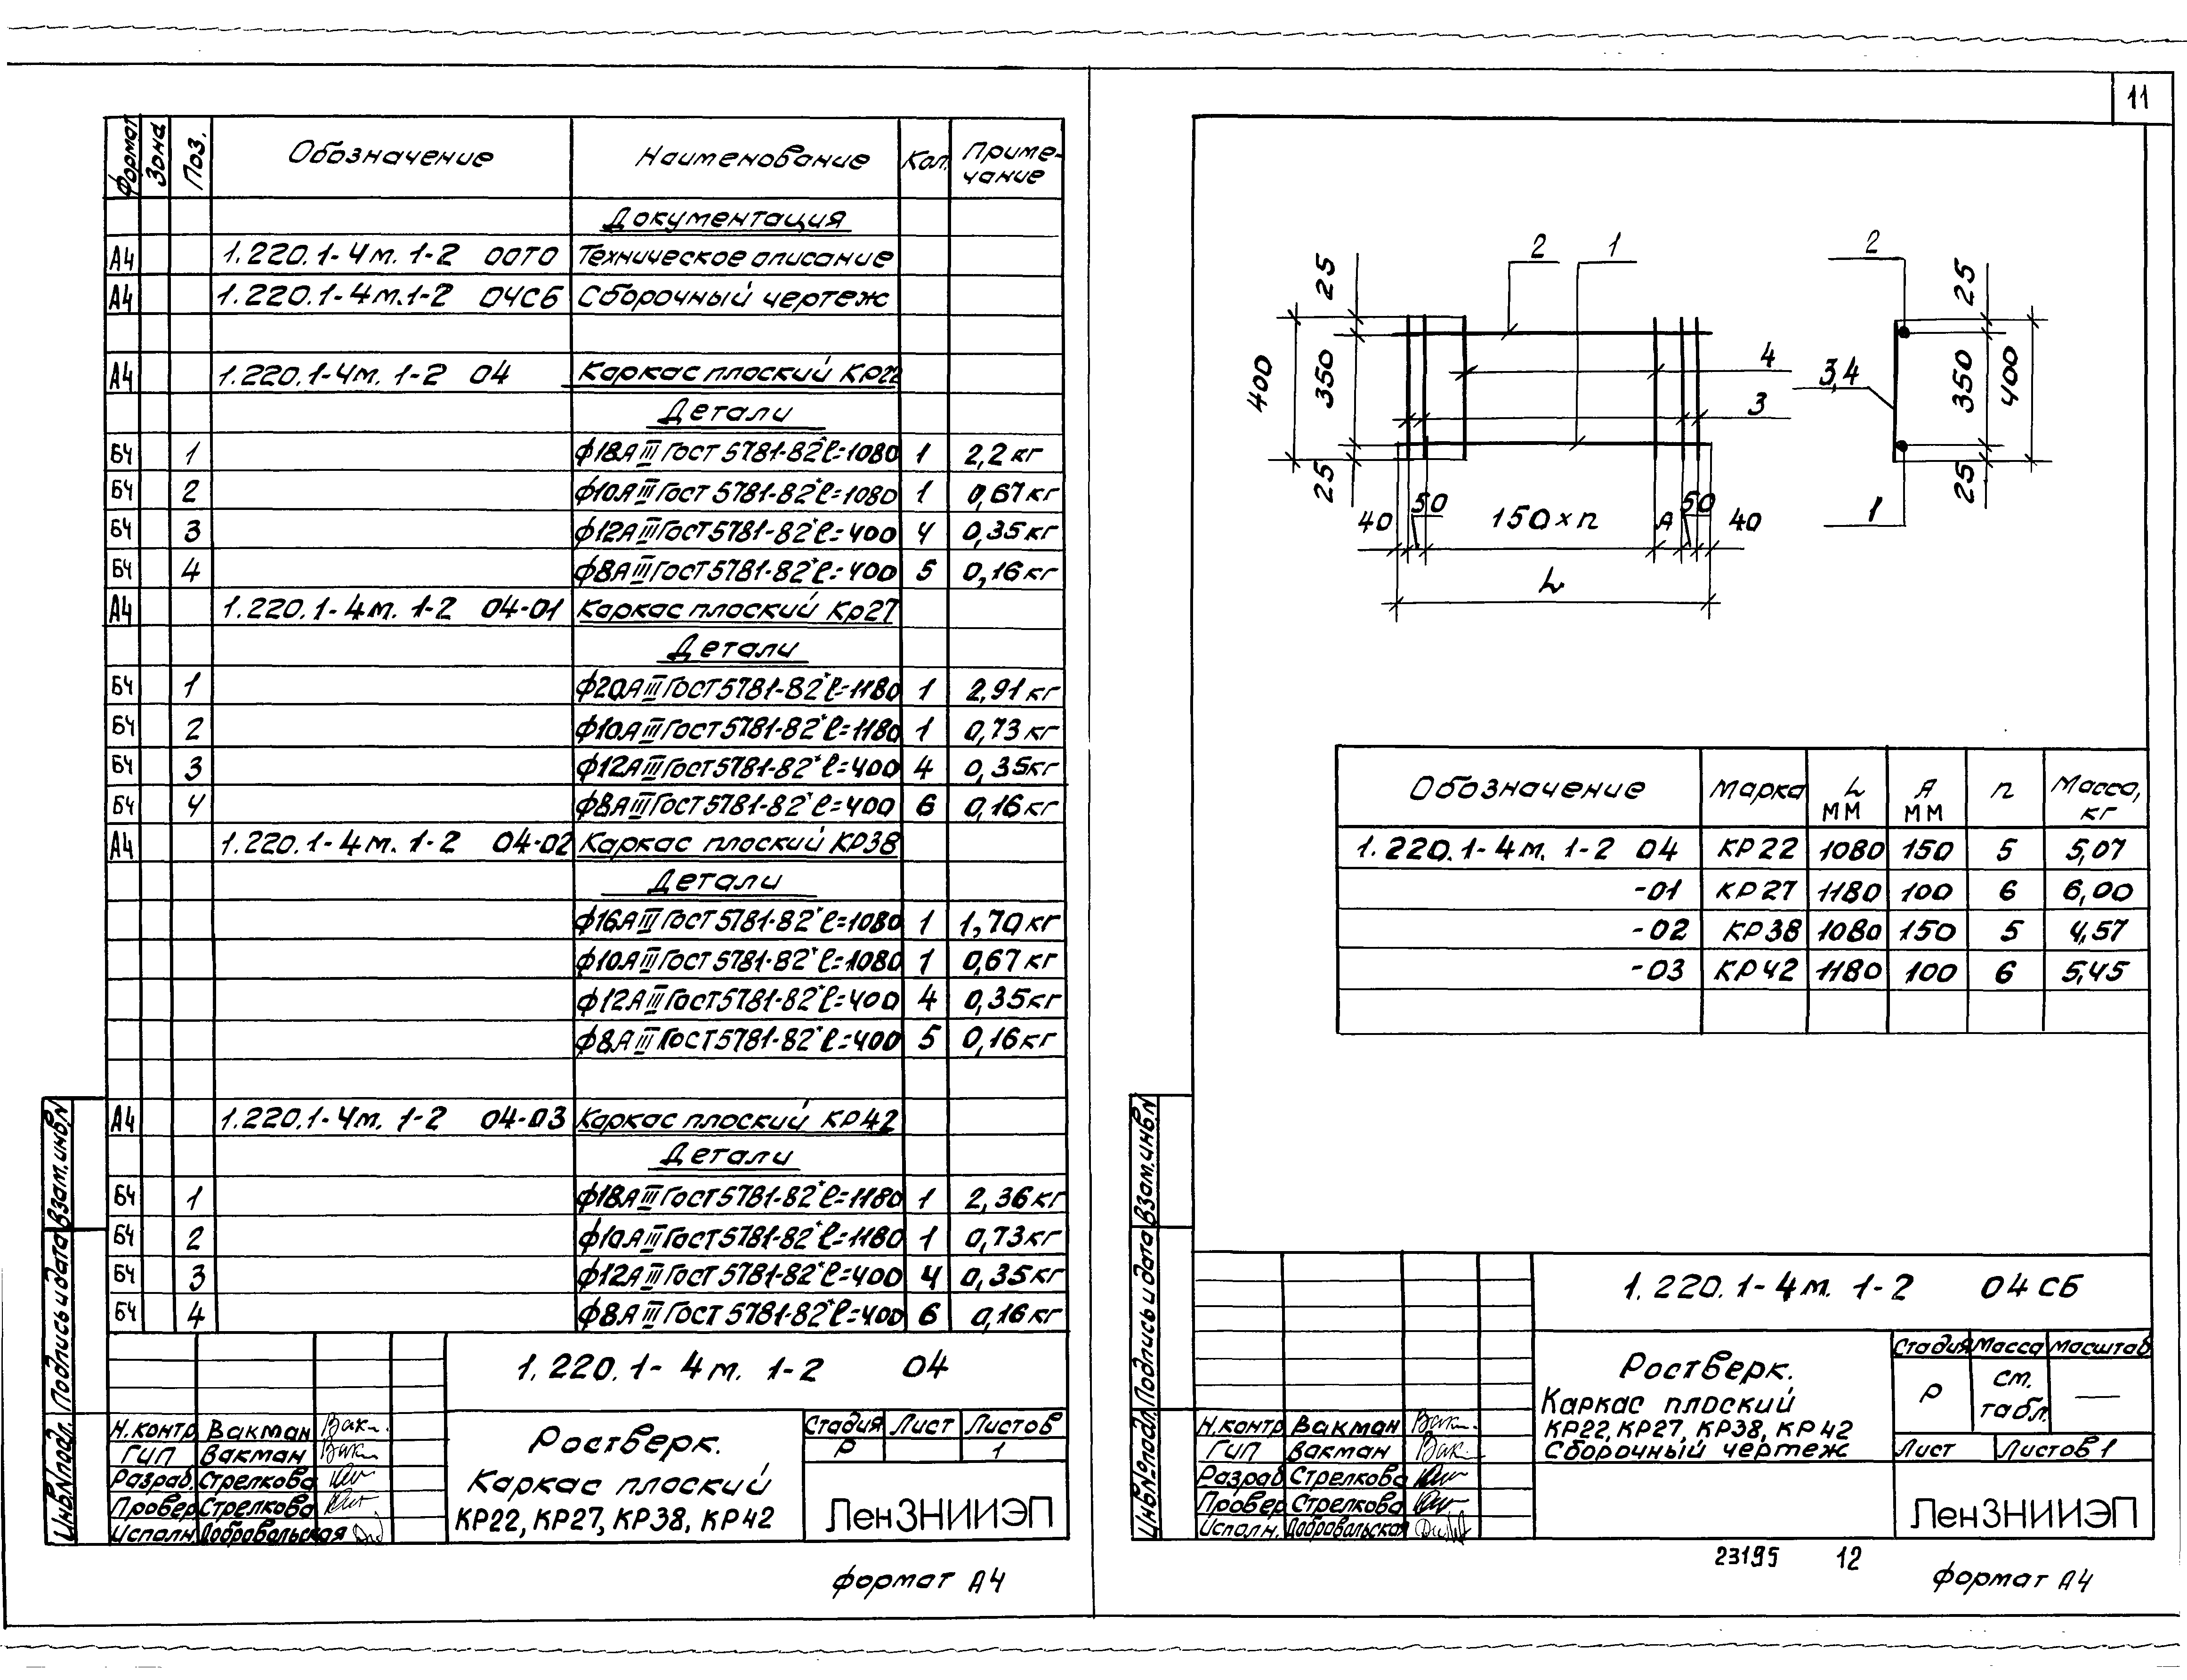 Формат Зона Поз. Обозначение Наименование Кол. Приме-
чание
Документация
А4 1.220.1-4м.1-2 00ТО Техническое описание
А4 1.220.1-4м.1-2 04СБ Сборочный чертеж
А4 1.220.1-4м.1-2 04 Каркас плоский КР22
Детали
БЧ 1 ф18АIII ГОСТ 5781-82* ℓ=1080 1 2,2кг
БЧ 2 ф10АIII ГОСТ 5781-82* ℓ=1080 1 0,67кг
БЧ 3 ф12АIII ГОСТ 5781-82* ℓ=400 4 0,35кг
БЧ 4 ф8АIII ГОСТ 5781-82* ℓ=400 5 0,16кг
А4 1.220.1-4м.1-2 04-01 Каркас плоский Кр27
Детали
БЧ 1 ф20АIII ГОСТ 5781-82* ℓ=1180 1 2,91кг
БЧ 2 ф10АIII ГОСТ 5781-82* ℓ=1180 1 0,73кг
БЧ 3 ф12АIII ГОСТ 5781-82* ℓ=400 4 0,35кг
БЧ 4 ф8АIII ГОСТ 5781-82* ℓ=400 6 0,16кг
А4 1.220.1-4м.1-2 04-02 Каркас плоский КР38
Детали
ф16АIII ГОСТ 5781-82* ℓ=1080 1 1,70кг
ф10АIII ГОСТ 5781-82* ℓ=1080 1 0,67кг
ф12АIII ГОСТ 5781-82* ℓ=400 4 0,35кг
ф8АIII ГОСТ 5781-82* ℓ=400 5 0,16кг
А4 1.220.1-4м.1-2 04-03 Каркас плоский КР42
Детали
БЧ 1 ф18АIII ГОСТ 5781-82* ℓ=1180 1 2,36кг
БЧ 2 ф10АIII ГОСТ 5781-82* ℓ=1180 1 0,73кг
БЧ 3 ф12АIII ГОСТ 5781-82* ℓ=400 4 0,35кг
БЧ 4 ф8АIII ГОСТ 5781-82* ℓ=400 6 0,16кг
Взам.инв.N
Подпись и дата
Инв.N подл.
1.220.1-4м.1-2 04
Н.контр Вакман
ГИП Вакман
Разраб. Стрелкова
Провер Стрелкова
Исполн. Добровольская
Ростверк.
Каркас плоский
КР22, КР27, КР38, КР42
Стадия Лист Листов
Р 1
ЛенЗНИИЭП
формат А4
11
2 1 2
25 25
400 350 4 3,4 350 400
3
25 25
1
40 50 150×n А 50 40
L
Обозначение Марка L
мм А
мм n Масса,
кг
1.220.1-4м.1-2 04 КР22 1080 150 5 5,07
-01 КР27 1180 100 6 6,00
-02 КР38 1080 150 5 4,57
-03 КР42 1180 100 6 5,45
Взам.инв.N
Подпись и дата
Инв.№подл.
1.220.1-4м.1-2 04СБ
Н.контр Вакман
ГИП Вакман
Разраб Стрелкова
Провер Стрелкова
Исполн. Добровольская
Ростверк.
Каркас плоский
КР22, КР27, КР38, КР42
Сборочный чертеж
Стадия Масса Масштаб
Р см.
табл. —
Лист Листов 1
ЛенЗНИИЭП
23195 12
формат А4